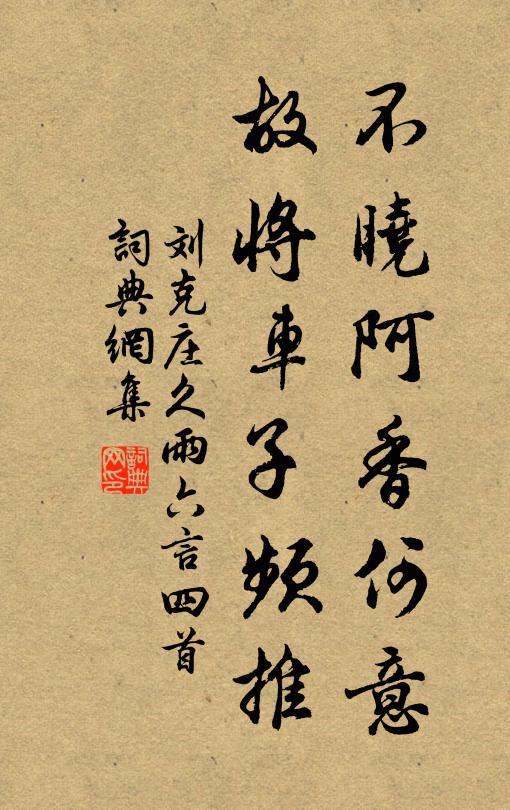 不曉阿香何意
故將車子頻推
刘克庄久雨六言四首
詞典網集
詞典网印